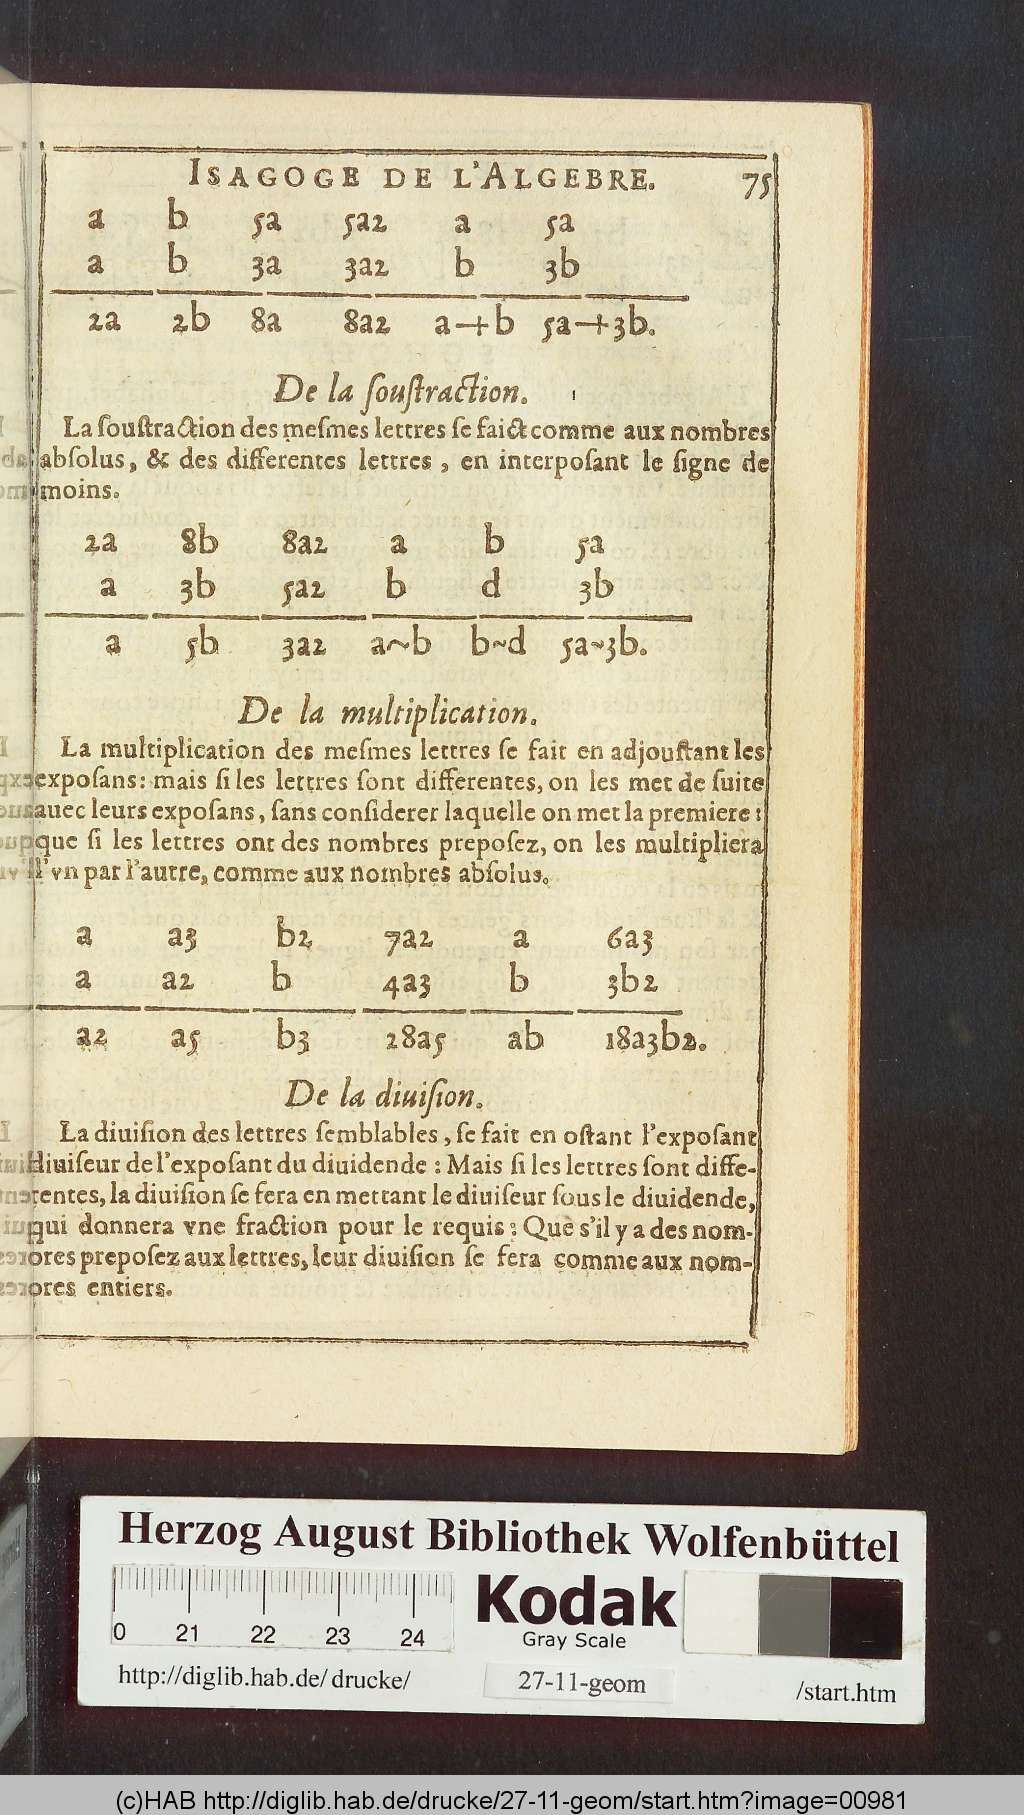 ISAGOGE DE L'ALGEBRE. 75
a b 5a 5a2 a 5a
a b 3a 3a2 b 3b
2a 2b 8a 8a2 a+b 5a+3b.
De la ſouſtraction.
La ſouſtraction des meſmes lettres ſe faict comme aux nombres
abſolus, & des differentes lettres, en interpoſant le ſigne de
moins.
2a 8b 8a2 a b 5a
a 3b 5a2 b d 3b
a 5b 3a2 a~b b~d 5a~3b.
De la multiplication.
La multiplication des meſmes lettres ſe fait en adjouſtant les
expoſans: mais ſi les lettres ſont differentes, on les met de ſuite
auec leurs expoſans, ſans conſiderer laquelle on met la premiere:
que ſi les lettres ont des nombres prepoſez, on les multipliera
l'vn par l'autre, comme aux nombres abſolus.
a a3 b2 7a2 a 6a3
a a2 b 4a3 b 3b2
a2 a5 b3 28a5 ab 18a3b2.
De la diuiſion.
La diuiſion des lettres ſemblables, ſe fait en oſtant l'expoſant
diuiſeur de l'expoſant du diuidende: Mais ſi les lettres ſont diffe-
rentes, la diuiſion ſe fera en mettant le diuiſeur ſous le diuidende,
qui donnera vne fraction pour le requis: Que s'il y a des nom-
bres prepoſez aux lettres, leur diuiſion ſe fera comme aux nom-
bres entiers.
Herzog August Bibliothek Wolfenbüttel
0 21 22 23 24
Kodak
Gray Scale
http://diglib.hab.de/drucke/ 27-11-geom /start.htm
(c)HAB http://diglib.hab.de/drucke/27-11-geom/start.htm?image=00981